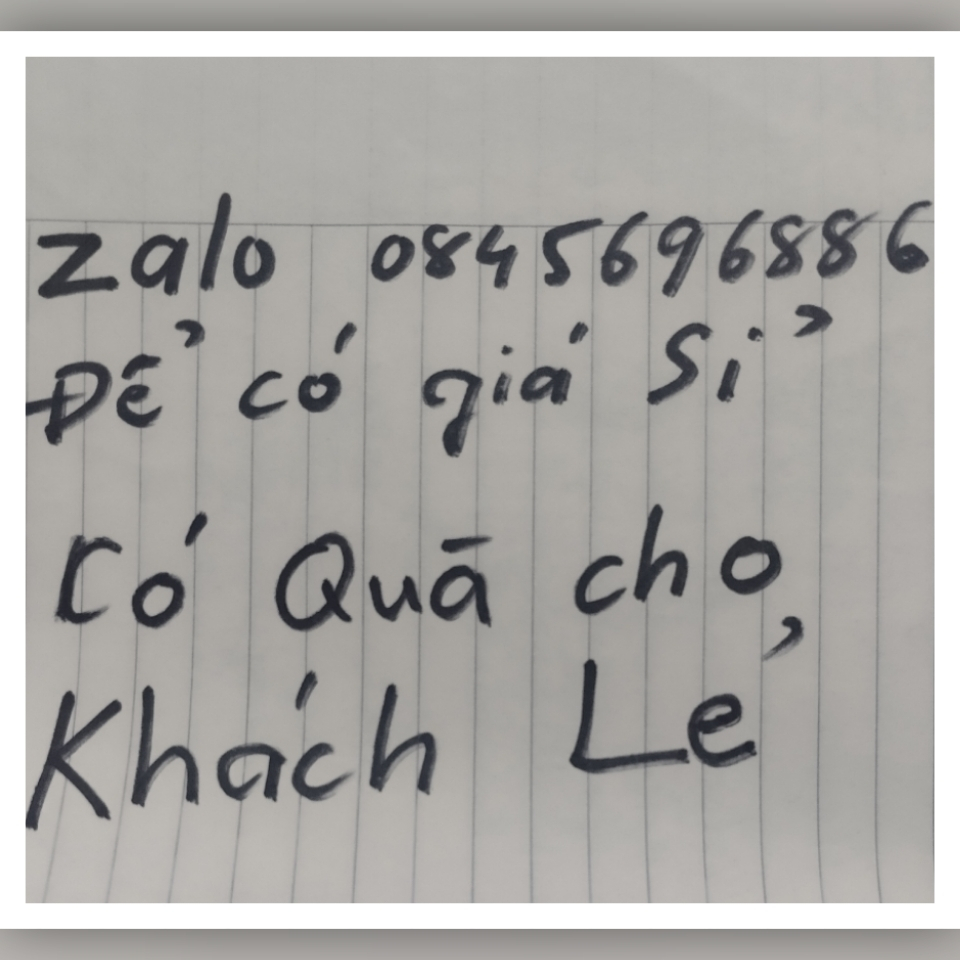 zalo 0845696886
Để có giá Sỉ
Có Quā cho
Khách Lẻ